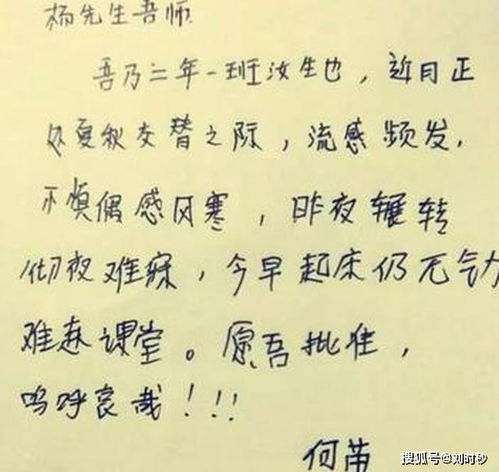 杨先生吾师
吾乃二年一班汝生也，近日正
处夏秋交替之际，流感频发，
不慎偶感风寒，昨夜辗转
彻夜难寐，今早起床仍无气力
难赴课堂。愿吾批准，
呜呼哀哉！！！
何苗
搜狐号@刘时秒